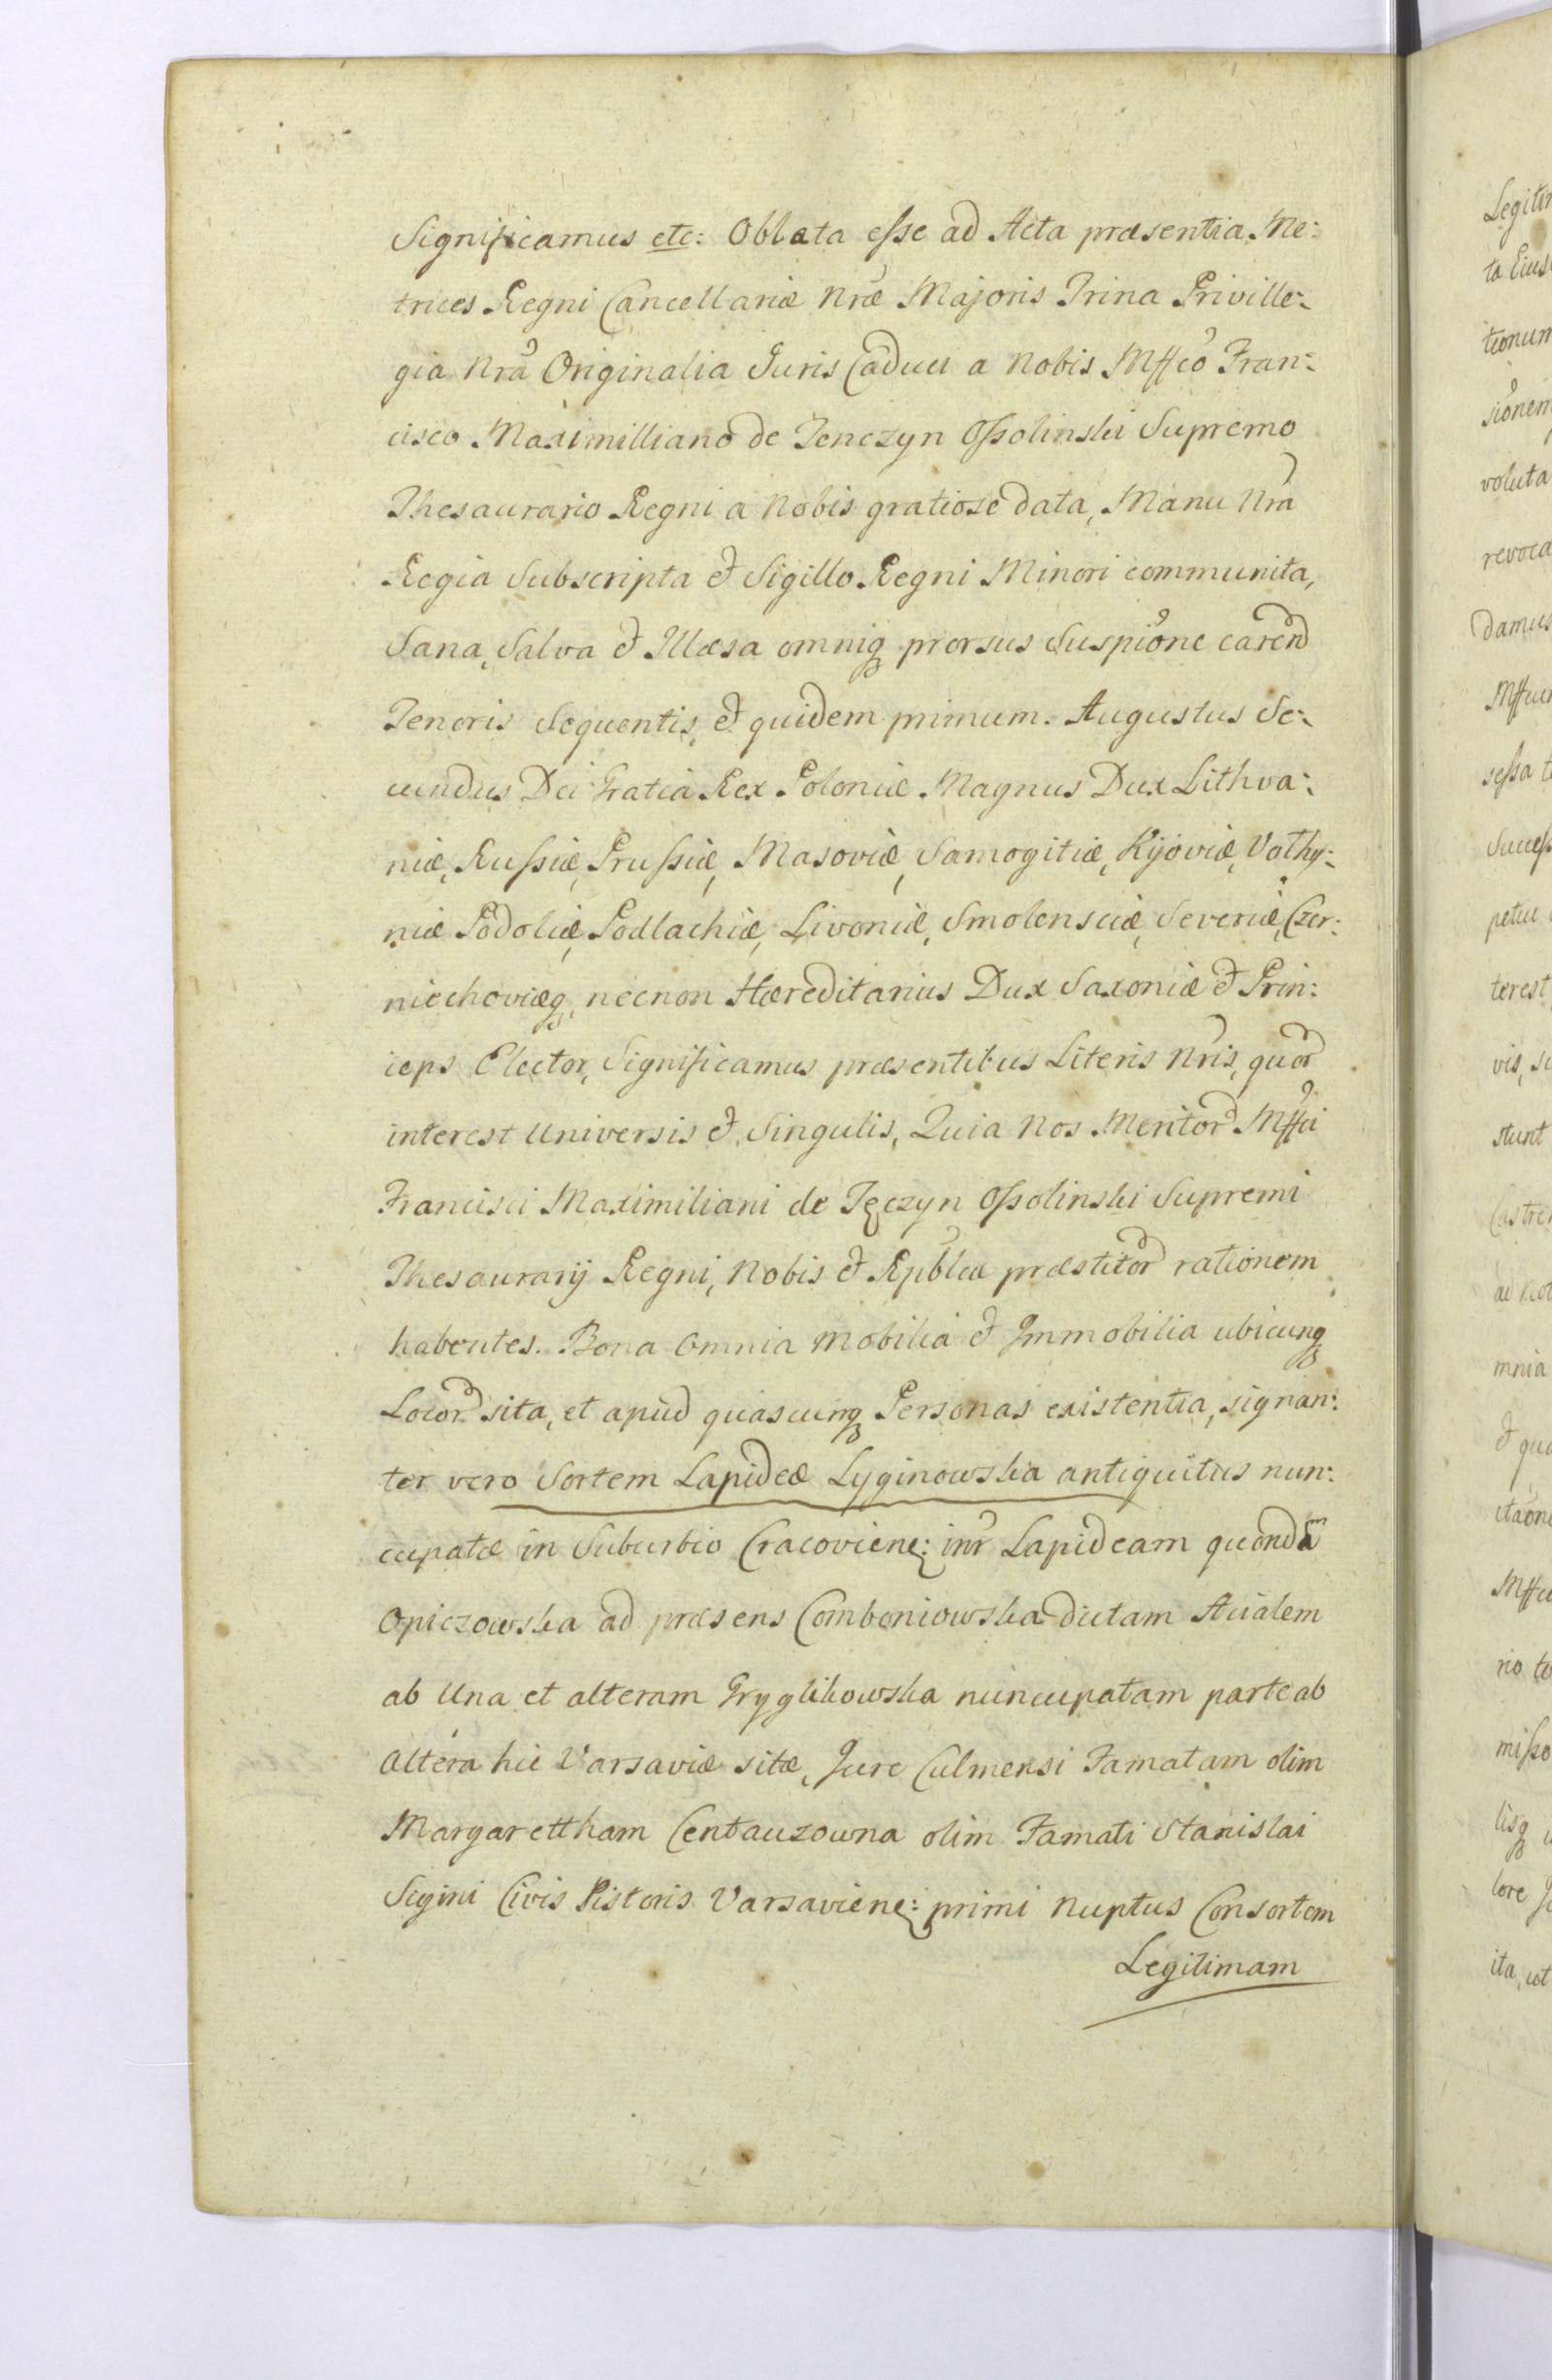 Significamus etc: Oblata esse ad Acta præsentia Me:
trices Regni Cancellariæ Nræ Majoris Trina Priville:
gia Nra Originalia Juris Caduci a Nobis Mffco Fran:
cisco Maximilliano de Tenczyn Ossolinski Supremo
Thesaurario Regni a Nobis gratiose data, Manu Nra
Regia Subscripta et Sigillo Regni Minori communita,
Sana, Salva et Illæsa omniq prorsus Suspione carend
Tenoris Sequentis, et quidem primum. Augustus Se:
cundus Dei Gratia Rex Poloniæ Magnus Dux Lithva:
niæ, Russiæ, Prussiæ, Masoviæ, Samogitiæ, Kijoviæ, Volhy:
niæ Podoliæ, Podlachiæ, Livoniæ, Smolensciæ, Severiæ, Czer:
niechoviæq, necnon Hæreditarius Dux Saxoniæ et Prin:
ceps Elector, Significamus præsentibus Literis Nris, quor
interest Universis et Singulis, Quia Nos Meritor Mffci
Francisci Maximiliani de Tęczyn Ossolinski Supremi
Thesaurarij Regni, Nobis et Rpblcæ præstitor rationem
habentes. Bona Omnia Mobilia et Immobilia ubicunq
Locor sita, et apud quascunq Personas existentia, signan:
ter vero Sortem Lapideæ Lyginowska antiquitus nun:
cupatæ in Suburbio Cracoviene: intr Lapideam quondam
Opiczowska ad præsens Comboniowska dictam Acialem
ab Una et alteram Gryglikowska nuncupatam parte ab
Altera hic Varsaviæ sitæ, Jure Culmensi Famatam olim
Margarettham Centauzowna olim Famati Stanislai
Sigini Civis Pistoris Varsaviene: primi Nuptus Consortem
Legitimam